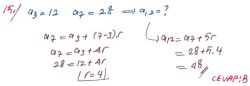 15./ a₃=12 a₇=28 ⟹ a₁₂=?
a₇ = a₃ + (7-3).r
a₇ = a₃ + 4r
28 = 12 + 4r
r=4
a₁₂ = a₇ + 5r
= 28 + 5.4
= 48
CEVAP: B